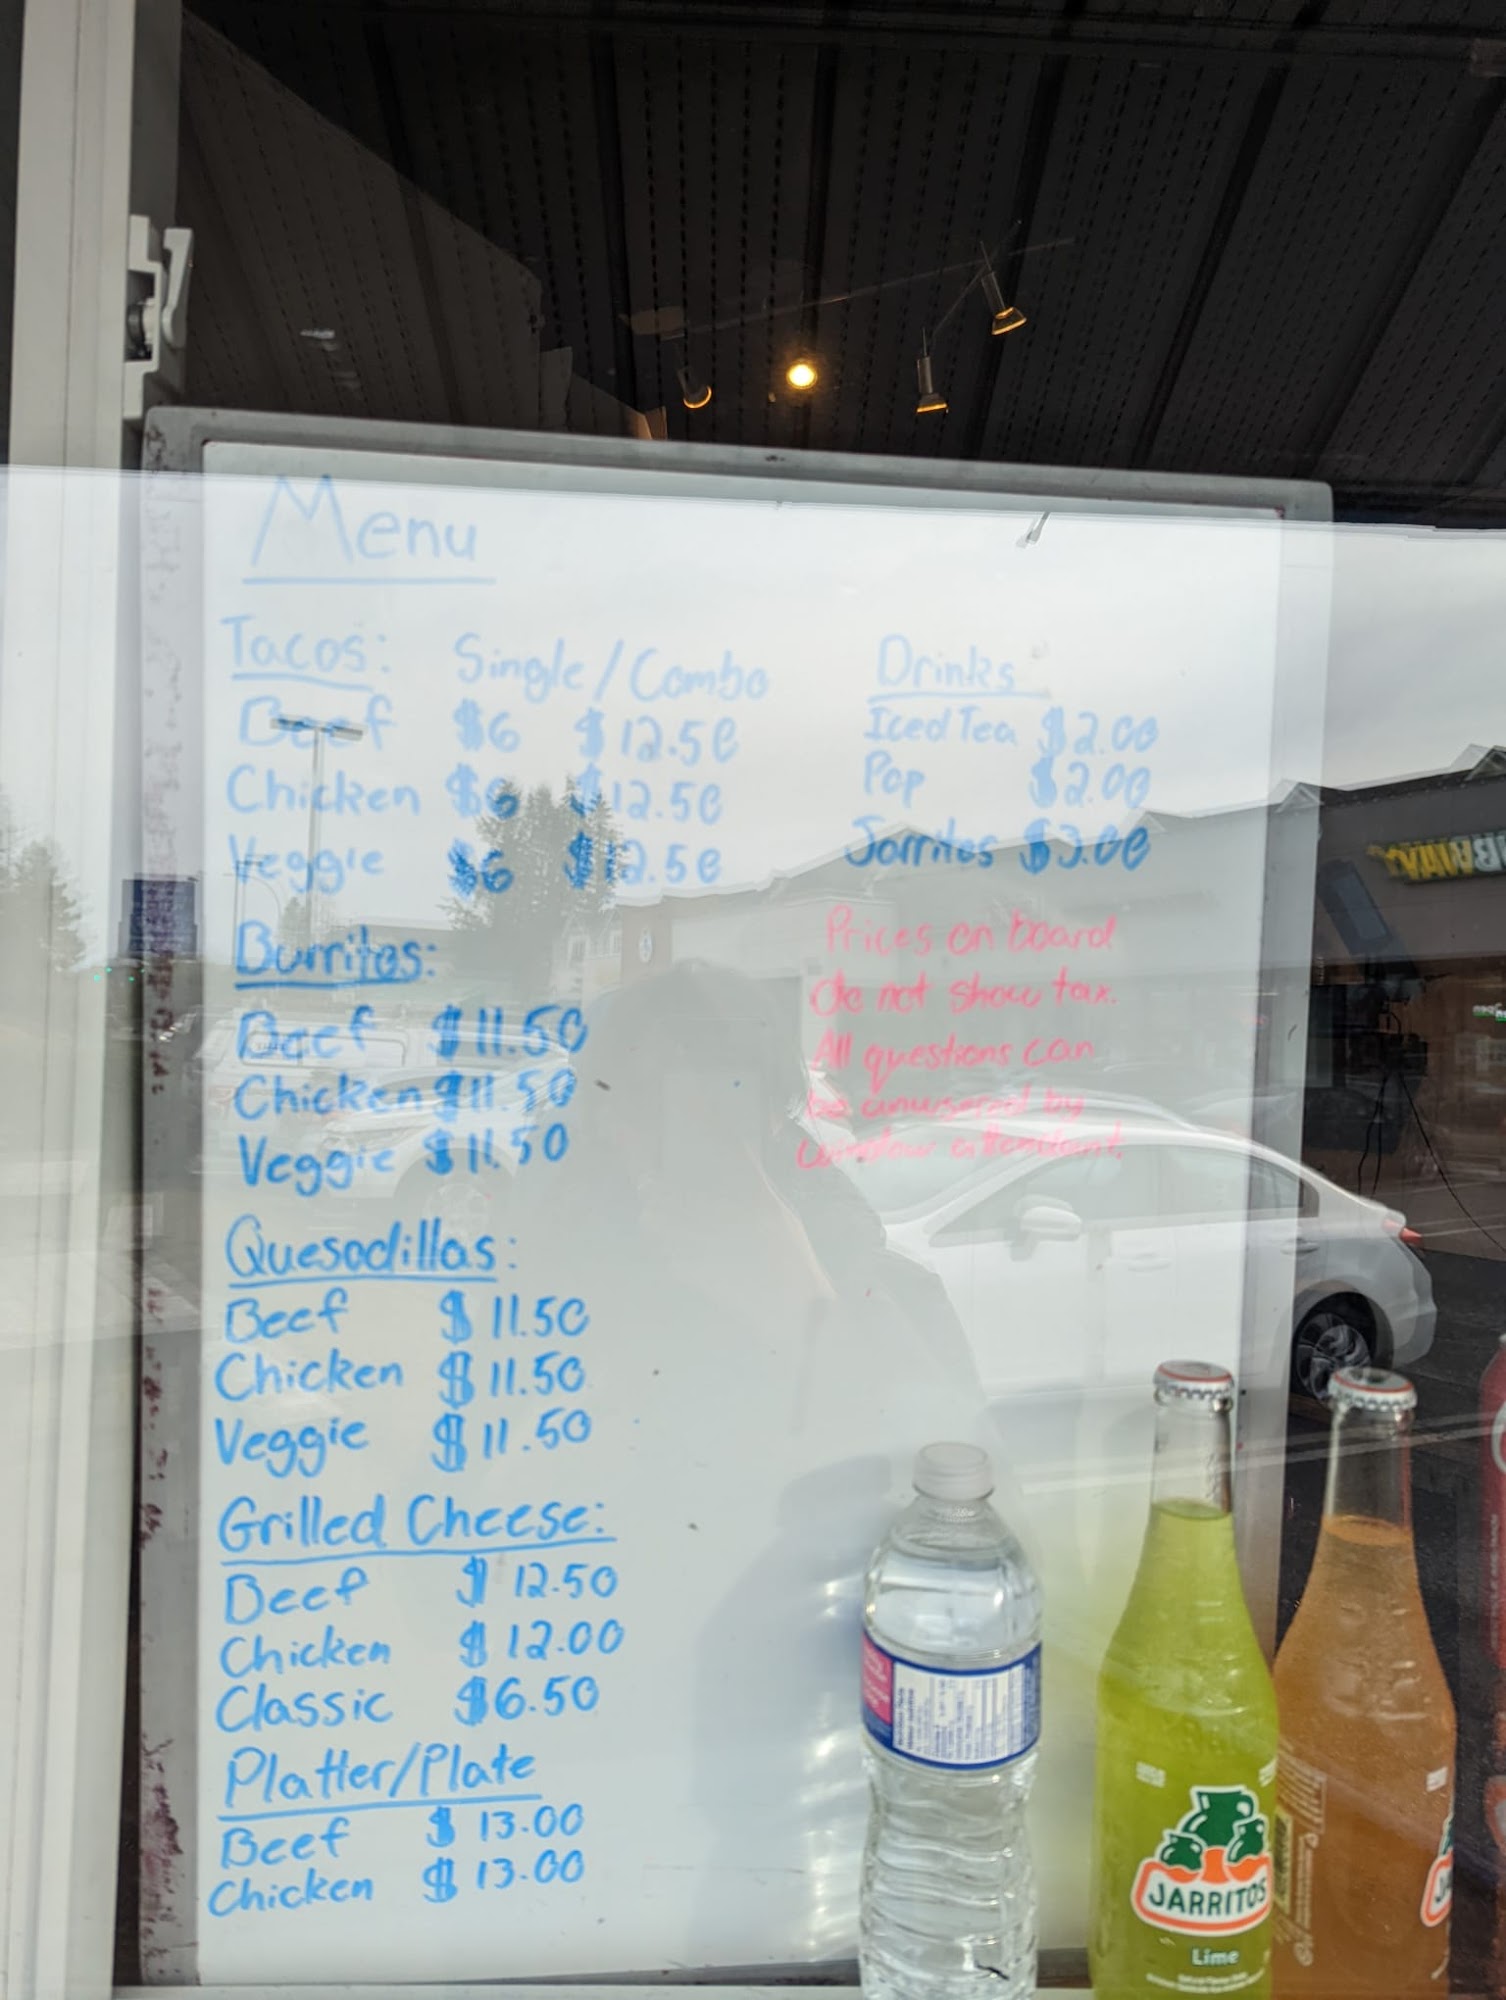 Menu
Tacos: Single/Combo
Beef $6 $12.50
Chicken $6 $12.50
Veggie $6 $12.50
Burritos:
Beef $11.50
Chicken $11.50
Veggie $11.50
Quesadillas:
Beef $11.50
Chicken $11.50
Veggie $11.50
Grilled Cheese:
Beef $12.50
Chicken $12.00
Classic $6.50
Platter/Plate
Beef $13.00
Chicken $13.00
Drinks
Iced Tea $2.00
Pop $2.00
Jarritos $3.00
Prices on board
do not show tax.
All questions can
be anwsered by
window attendant.
JARRITOS
Lime